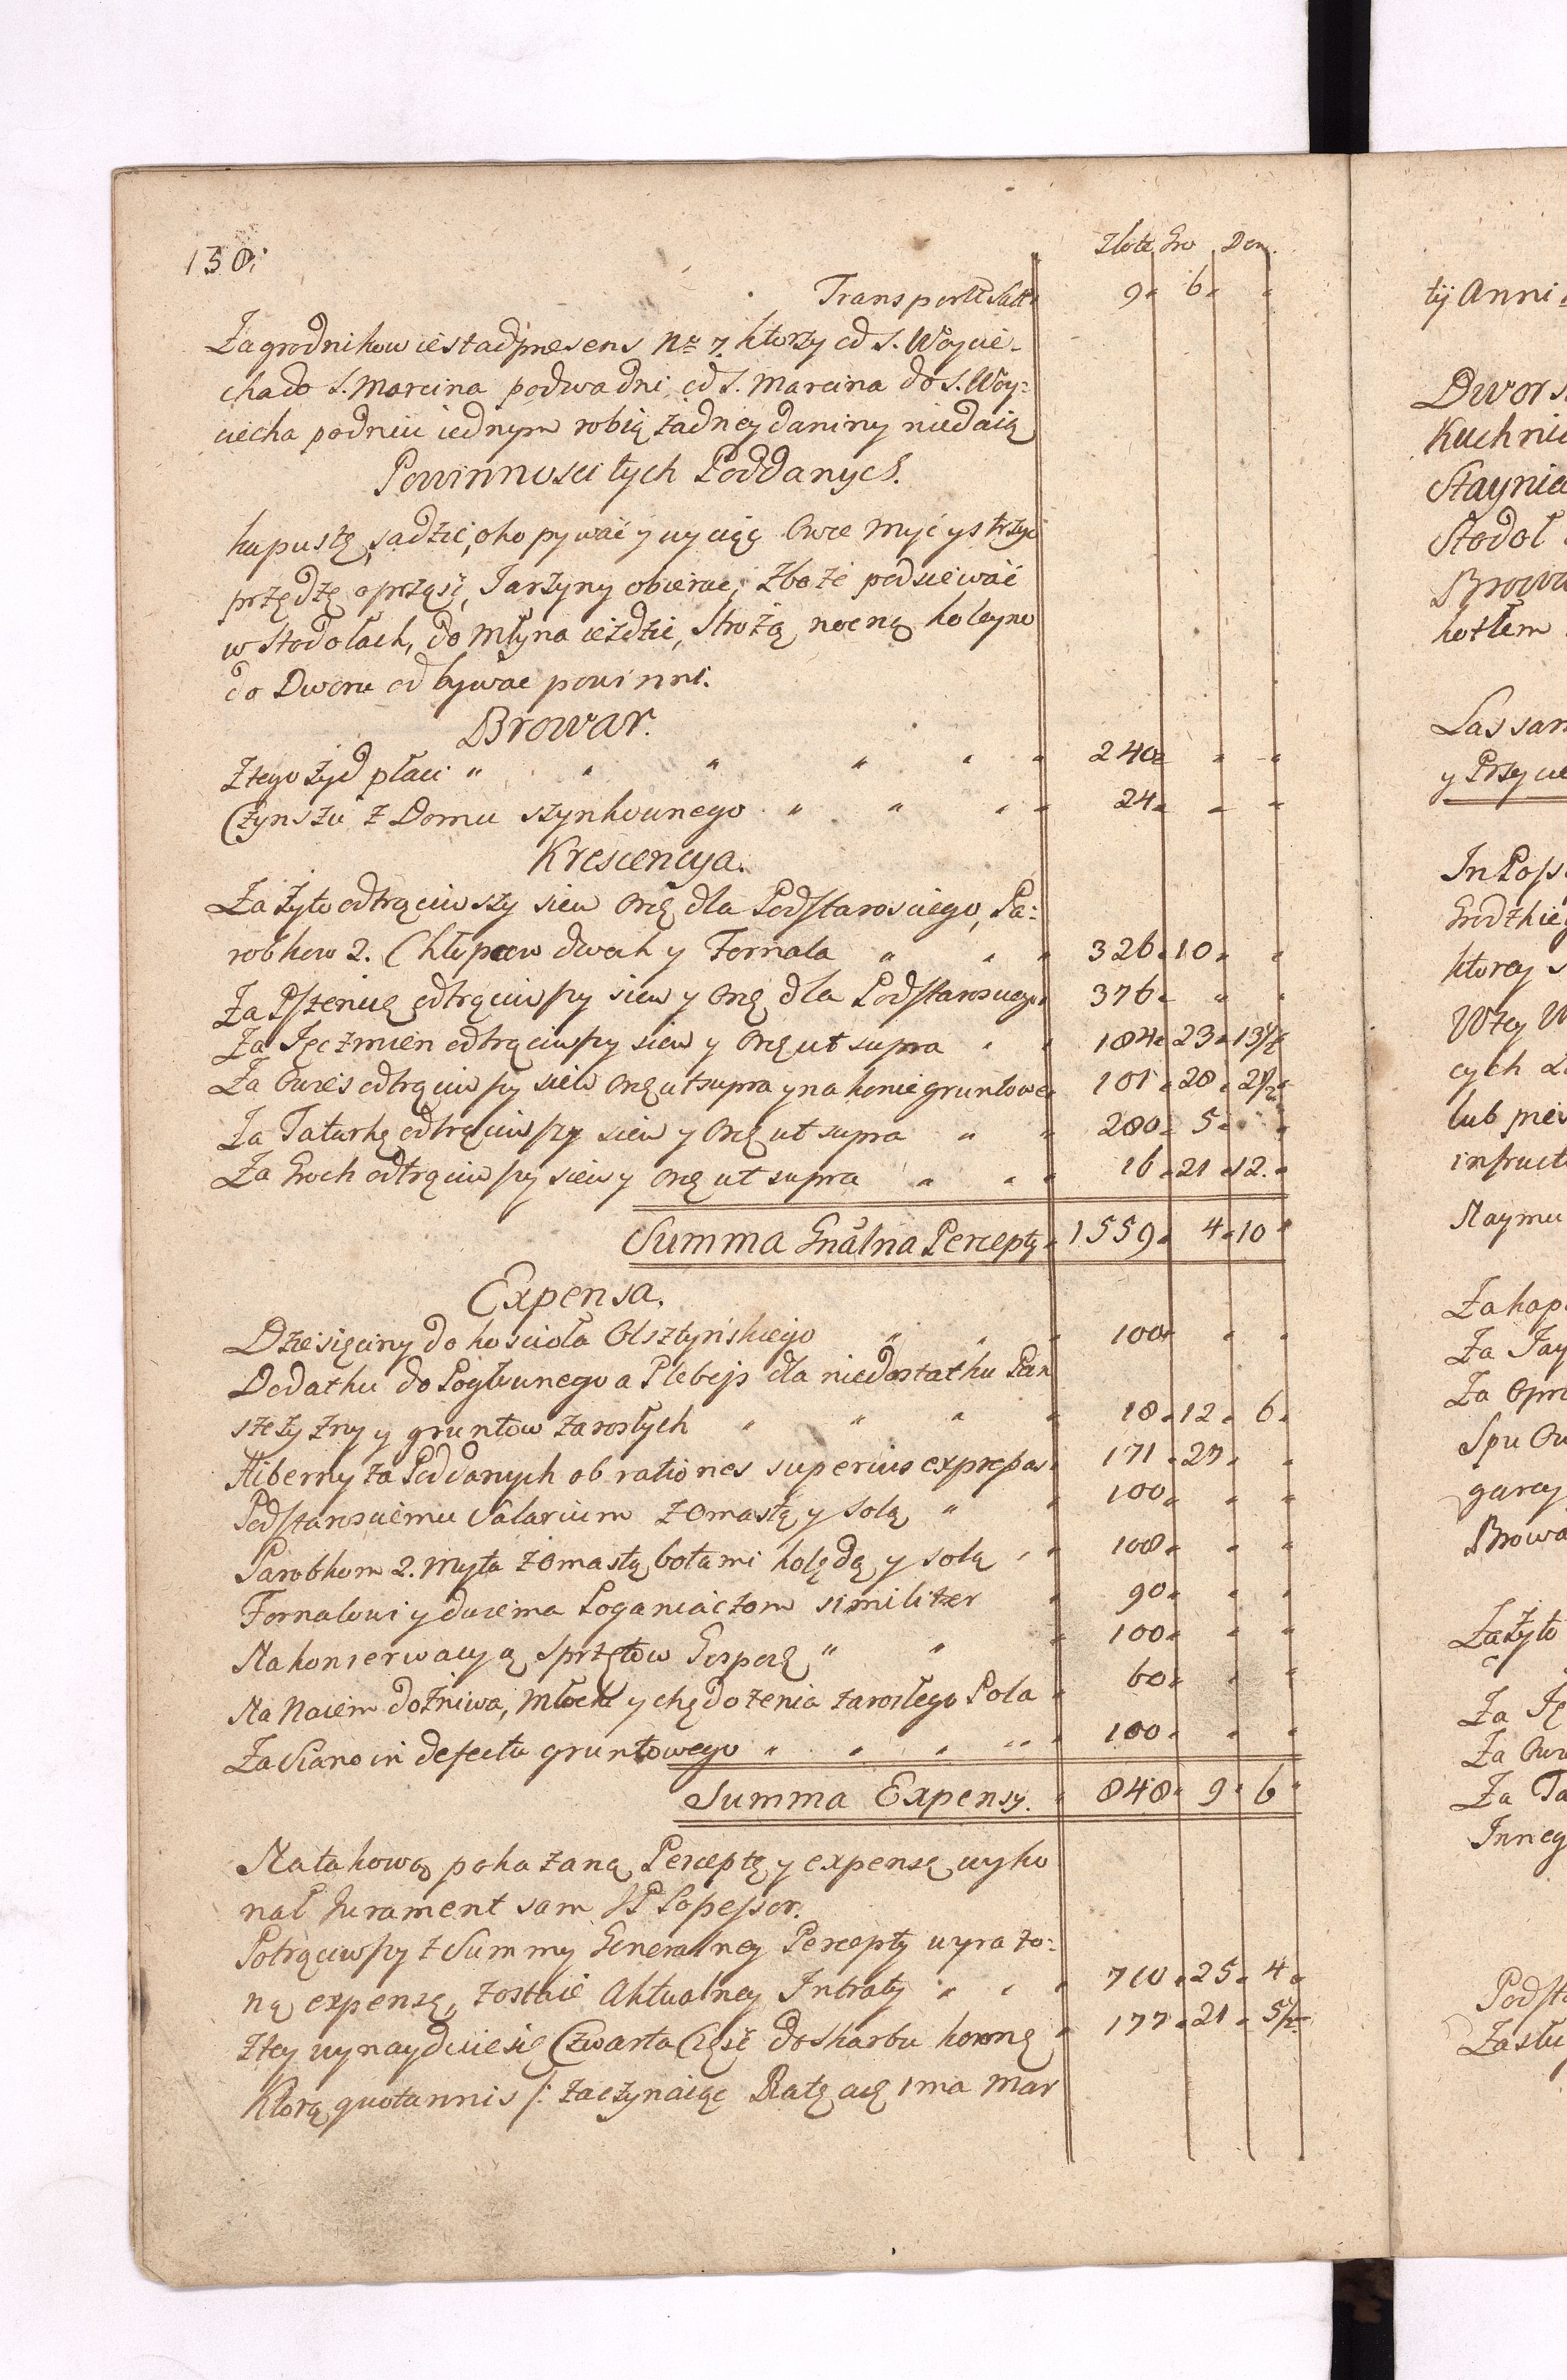 150.
Złote Gro Den.
Transport Latt 9 6
Zagrodnikow iest ad præsens Nro 7. ktorzy od S. Woycie-
cha do S. Marcina po dwa dni, od S. Marcina do S. Woy=
ciecha po dniu iednym robią żadney daniny niedaią
Powinnosci tych Poddanych.
kapustę sadzić, oko pywać y wyciąć Owce myć y strzyc
przędzę oprząść, Jarzyny obierac, Zboże podsiewać
w Stodołach, do Młyna ieździć, Strożą nocną koleyno
do Dworu odbywac powinni.
Browar.
Z tego Żyd płaci 240
Czynszu z Domu szynkownego 24
Krescencya.
Za Żyto odtrąciwszy siew Orę dla Podstarosciego, Pa=
robkow 2. Chłopcow dwoch y Fornala 326 10
Za Pszenicę odtrąciwszy siew y Orę dla Podstarosciego 376
Za Jęczmien odtrąciwszy siew y Orę ut supra 184 23 13 1/2
Za Owies odtrąciwszy siew Orę ut supra y na konie gruntowe 101 28 2 1/2
Za Tatarkę odtrąciwszy siew y Orę ut supra 280 5
Za Groch odtrąciwszy siew y Orę ut supra 16 21 12
Summa Gnalna Percepty 1559 4 10
Expensa.
Dziesięciny do kościoła Olsztyńskiego 100
Dodatku do Pogłwnego a Plebejs dla niedostatku Pan
szczyzny y gruntow zarosłych 18 12 6
Hiberny za Poddanych ob rationes superius expressas 171 27
Podstarosciemu Salarium z Omastą y Solą 100
Parobkom 2. Myta z Omastą botami kolędą y solą 108
Fornalowi y dwiema Poganiaczom similiter 90
Na konserwacyą Sprzętow Gospoę 100
Na Naiem do żniwa, Młocki y chędożenia zarosłego Pola 60
Za Siano in defectu gruntowego 100
Summa Expensy. 848 9 6
Na takową pokazaną Perceptę y expensę wyko
nał Jurament sam JP Possessor.
Potrąciwszy z Summy Generalney Percepty wyrażo=
ną expensę, zostaie Aktualney Intraty 710 25 4
Z tey wynaydzie się Czwarta Część do Skarbu koronę 177 21 5 1/2
Ktorą quotannis /: zaczynaiąc Ratę aę 1ma Mar
tij Anni
Kuchnia
Staynia
Stodoł
kotłem
ktorey
cych
lub
Naymu
Za
Za
Za
garcy
Za żyto
Za
Za
Za